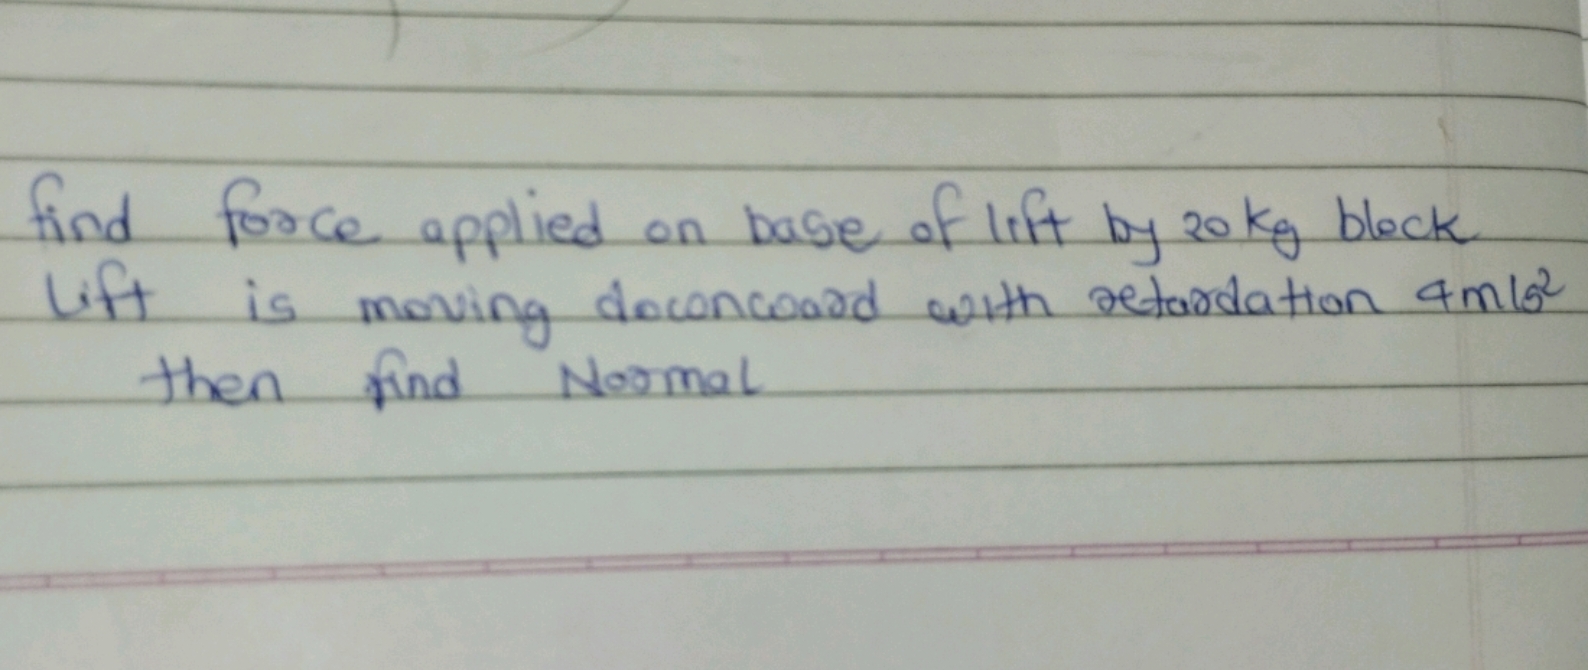 find force applied on base of lift by 20 kg block
Lift is moving downward with retardation 4m/s²
then find Normal